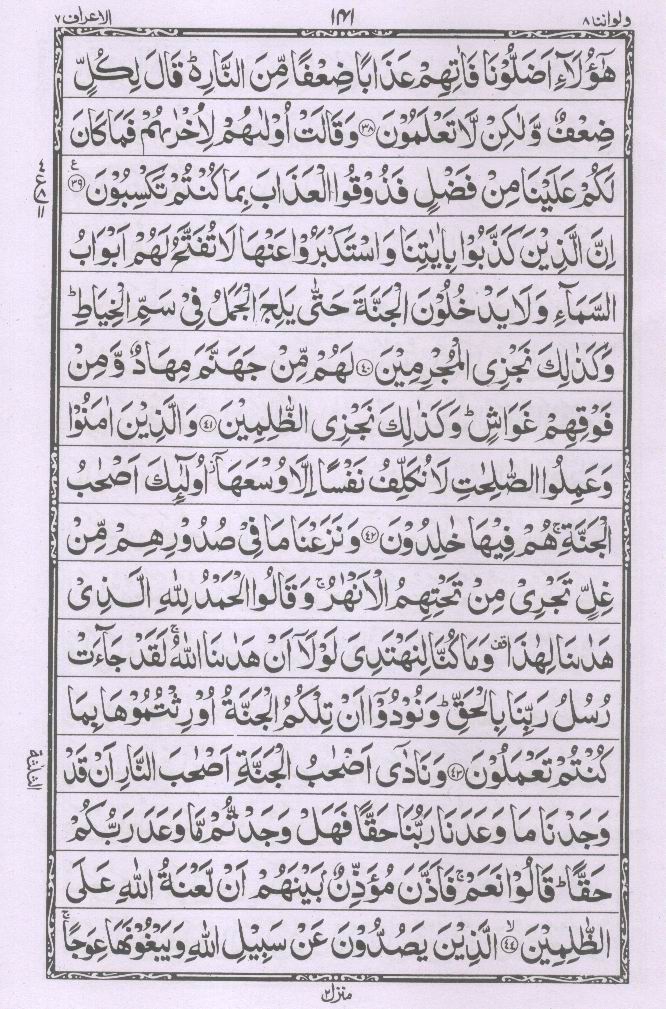 ولواننا ٨ ١٤١ الاعراف ٧
هٰۤؤُلَآءِ اَضَلُّوْنَا فَاٰتِهِمْ عَذَابًا ضِعْفًا مِّنَ النَّارِ ؕ۬ قَالَ لِكُلٍّ
ضِعْفٌ وَّلٰكِنْ لَّا تَعْلَمُوْنَ ﴿٣٨﴾ وَقَالَتْ اُوْلٰىهُمْ لِاُخْرٰىهُمْ فَمَا كَانَ
لَكُمْ عَلَيْنَا مِنْ فَضْلٍ فَذُوْقُوا الْعَذَابَ بِمَا كُنْتُمْ تَكْسِبُوْنَ ﴿٣٩﴾ ع
اِنَّ الَّذِيْنَ كَذَّبُوْا بِاٰيٰتِنَا وَاسْتَكْبَرُوْا عَنْهَا لَا تُفَتَّحُ لَهُمْ اَبْوَابُ
السَّمَآءِ وَلَا يَدْخُلُوْنَ الْجَنَّةَ حَتّٰى يَلِجَ الْجَمَلُ فِىْ سَمِّ الْخِيَاطِ ؕ
وَكَذٰلِكَ نَجْزِى الْمُجْرِمِيْنَ ﴿٤٠﴾ لَهُمْ مِّنْ جَهَنَّمَ مِهَادٌ وَّمِنْ
فَوْقِهِمْ غَوَاشٍ ؕ وَكَذٰلِكَ نَجْزِى الظّٰلِمِيْنَ ﴿٤١﴾ وَالَّذِيْنَ اٰمَنُوْا
وَعَمِلُوا الصّٰلِحٰتِ لَا نُكَلِّفُ نَفْسًا اِلَّا وُسْعَهَاۤ ؗ اُولٰٓئِكَ اَصْحٰبُ
الْجَنَّةِ ۚ هُمْ فِيْهَا خٰلِدُوْنَ ﴿٤٢﴾ وَنَزَعْنَا مَا فِىْ صُدُوْرِهِمْ مِّنْ
غِلٍّ تَجْرِىْ مِنْ تَحْتِهِمُ الْاَنْهٰرُ ۚ وَقَالُوا الْحَمْدُ لِلّٰهِ الَّذِىْ
هَدٰىنَا لِهٰذَا قف وَمَا كُنَّا لِنَهْتَدِىَ لَوْلَاۤ اَنْ هَدٰىنَا اللّٰهُ ۚ لَقَدْ جَآءَتْ
رُسُلُ رَبِّنَا بِالْحَقِّ ؕ وَنُوْدُوْۤا اَنْ تِلْكُمُ الْجَنَّةُ اُوْرِثْتُمُوْهَا بِمَا
كُنْتُمْ تَعْمَلُوْنَ ﴿٤٣﴾ وَنَادٰۤى اَصْحٰبُ الْجَنَّةِ اَصْحٰبَ النَّارِ اَنْ قَدْ
وَجَدْنَا مَا وَعَدَنَا رَبُّنَا حَقًّا فَهَلْ وَجَدْتُّمْ مَّا وَعَدَ رَبُّكُمْ
حَقًّا ؕ قَالُوْا نَعَمْ ۚ فَاَذَّنَ مُؤَذِّنٌۢ بَيْنَهُمْ اَنْ لَّعْنَةُ اللّٰهِ عَلَى
الظّٰلِمِيْنَ ﴿٤٤﴾ۙ الَّذِيْنَ يَصُدُّوْنَ عَنْ سَبِيْلِ اللّٰهِ وَيَبْغُوْنَهَا عِوَجًا ۚ
منزل ٢